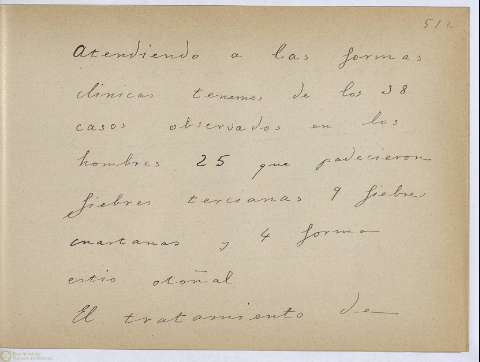 512
Atendiendo a las formas
clinicas tenemos de los 38
casos observados en los
hombres 25 que padecieron
fiebres tercianas 9 fiebres
cuartanas y 4 forma
estio otoñal
El tratamiento de